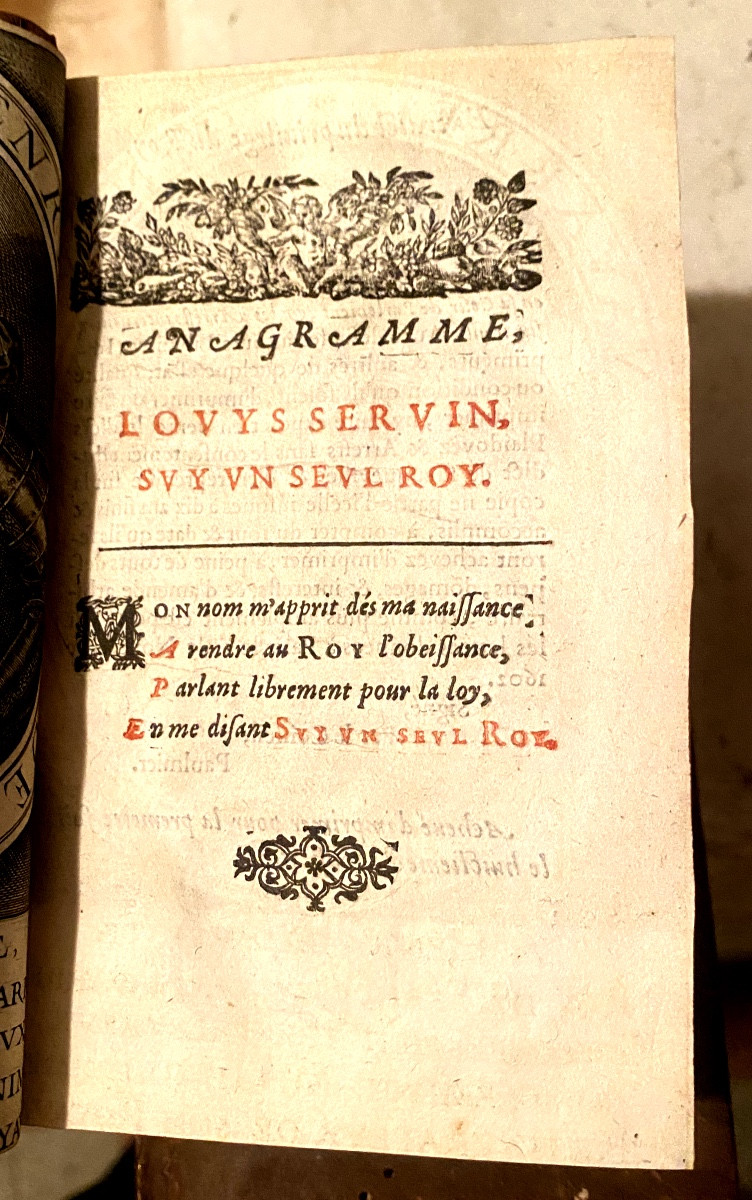 ANAGRAMME,
LOVYS SERVIN,
SVY VN SEVL ROY.
MON nom m'apprit dés ma naissance,
A rendre au ROY l'obeissance,
Parlant librement pour la loy,
En me disant SVY VN SEVL ROY.